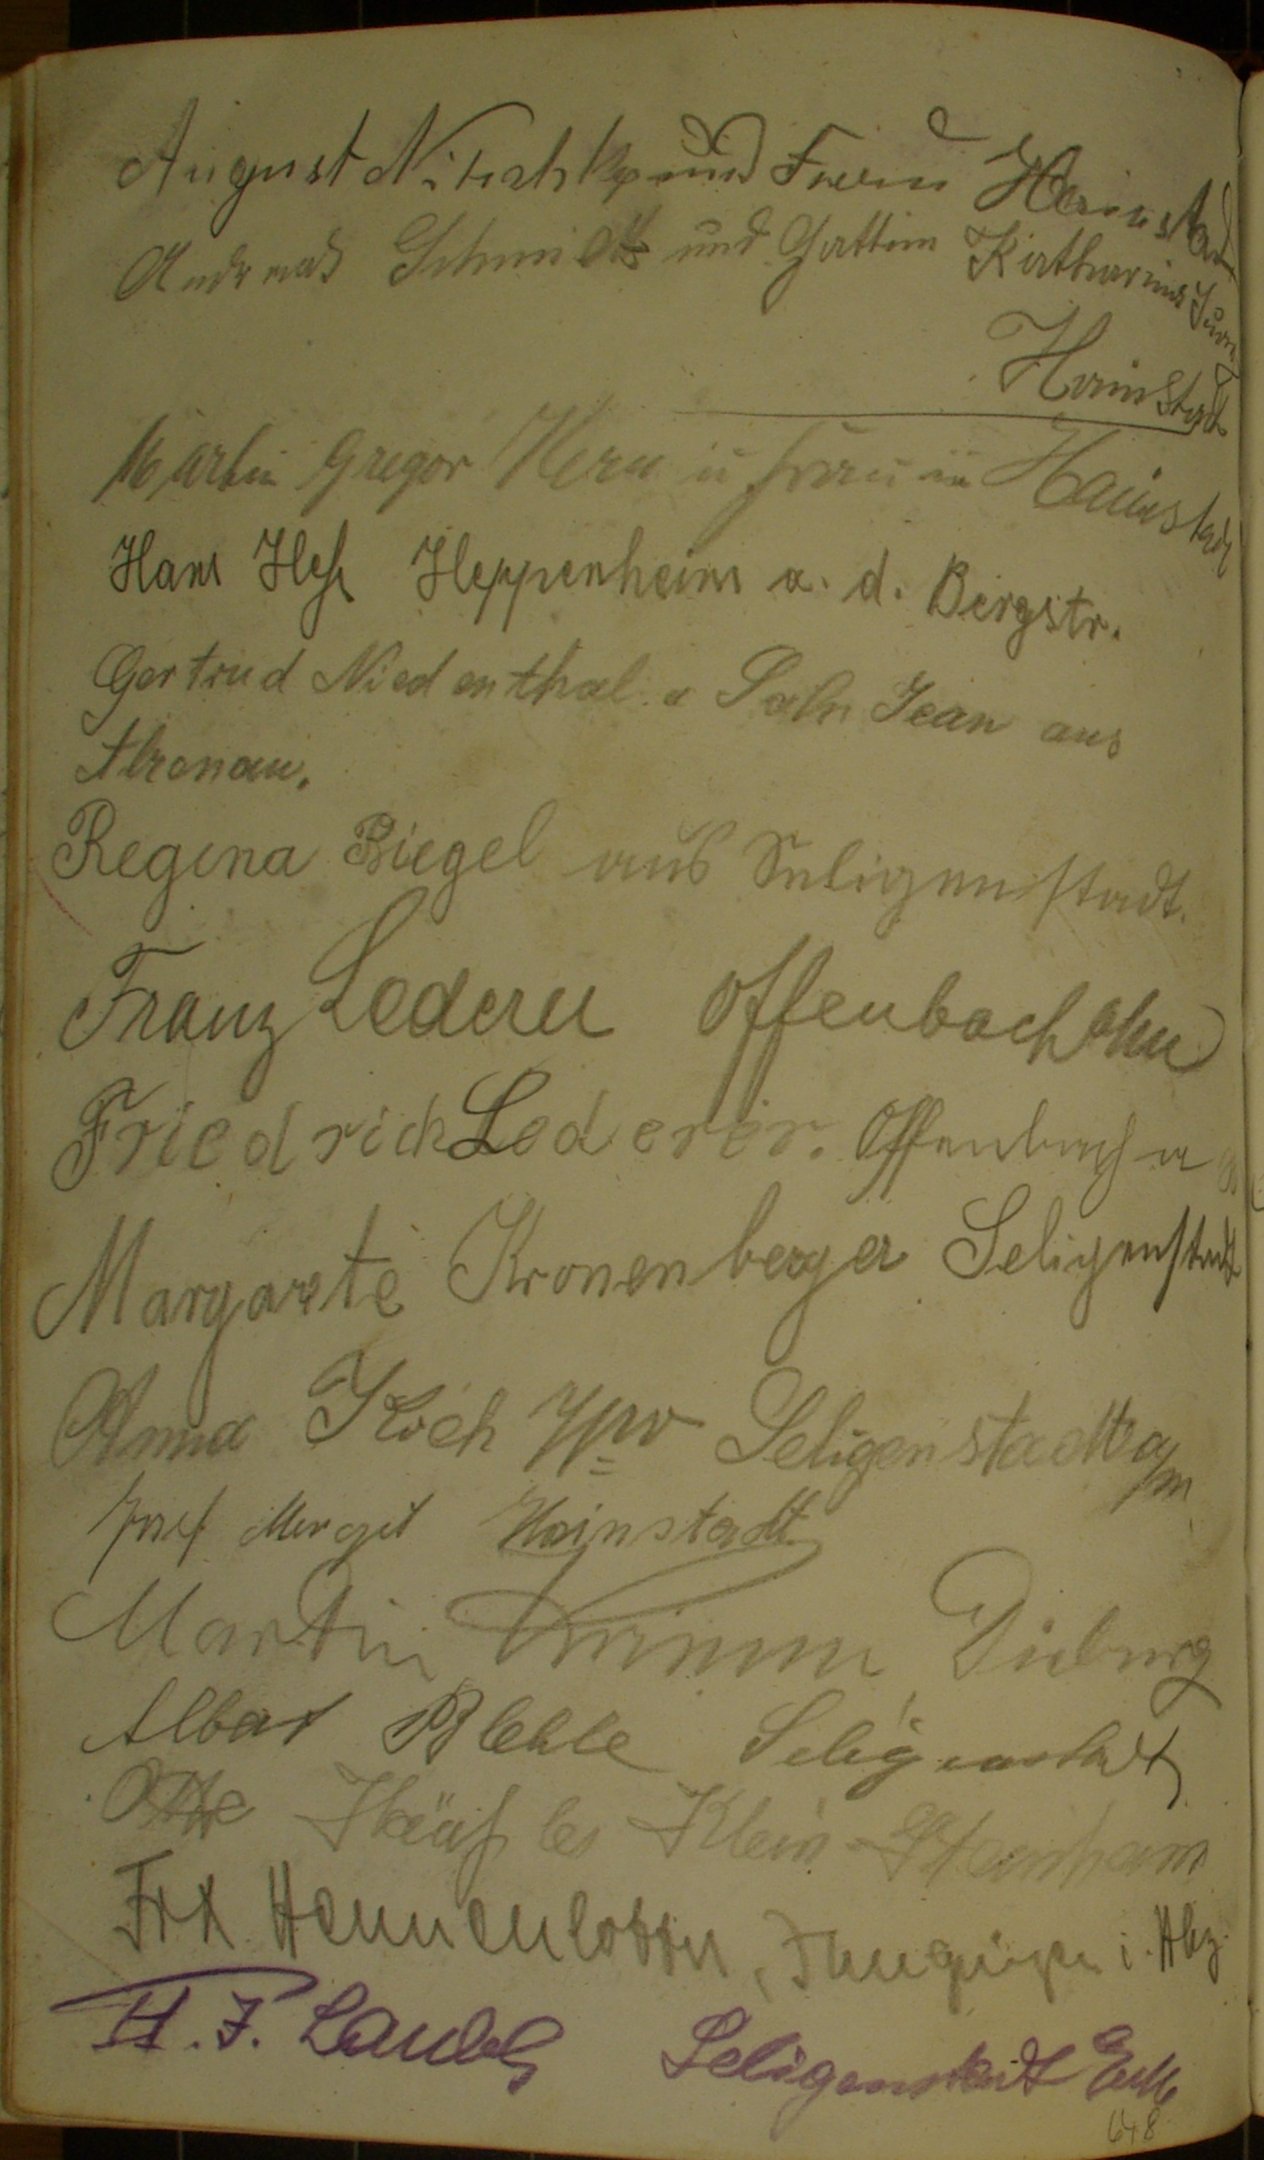 August Nitschke und Frau Hainstadt
Andreas Schmidt und Gattin Katharina
Hainstadt
Martin Gregor Kern u Frau in Hainstadt
Hans Heß Heppenheim a. d. Bergstr.
Gertrud Niedenthal u Sohn Jean aus
Alzenau.
Regina Biegel aus Seligenstadt.
Franz Lederer Offenbach
Friedrich Lederer. Offenbach a
Margarete Kronenberger Seligenstadt
Anna Koch Seligenstadt a/m
Josef Mergel Hainstadt
Martin Krimm Dieburg
Albert Blehle Seligenstadt
Otto Klein-
H. F. Laube Seligenstadt
648